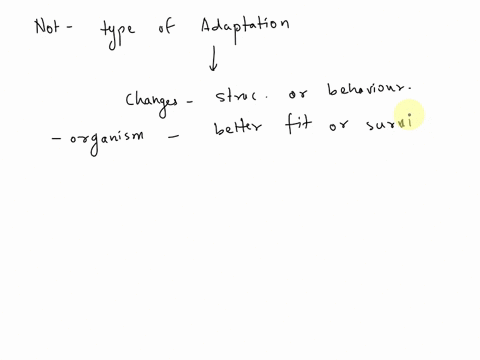 Not - type of Adaptation
Changes - struc. or behaviour.
- organism - better fit or survi